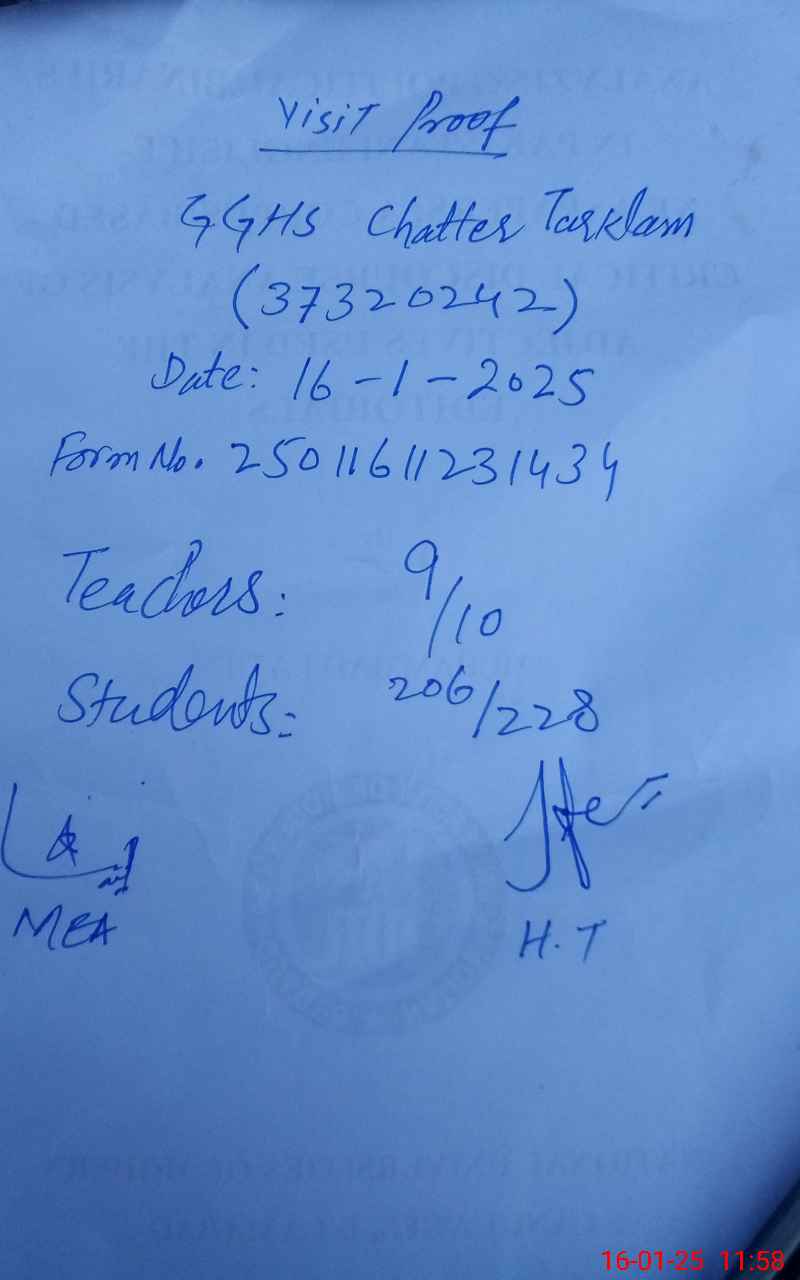 Visit Proof
GGHS Chatter Tarklam
(37320242)
Date: 16-1-2025
Form No. 25011611231434
Teachers: 9/10
Students: 206/228
MEA
H.T
16-01-25 11:58